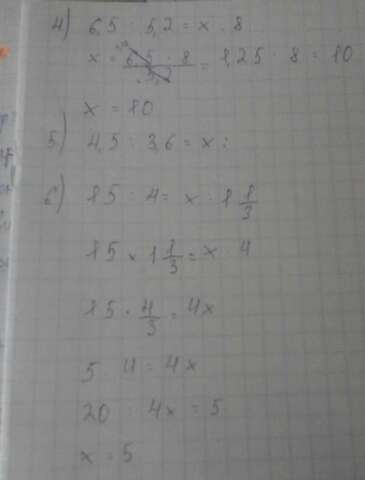 4) 6,5 : 5,2 = x : 8
x = 6,5 · 8 / 5,2 = 1,25 · 8 = 10
x = 10
5) 4,5 : 3,6 = x :
6) 15 : 4 = x : 1 1/3
15 × 1 1/3 = x · 4
15 · 4/3 = 4x
5 · 4 = 4x
20 : 4x = 5
x = 5